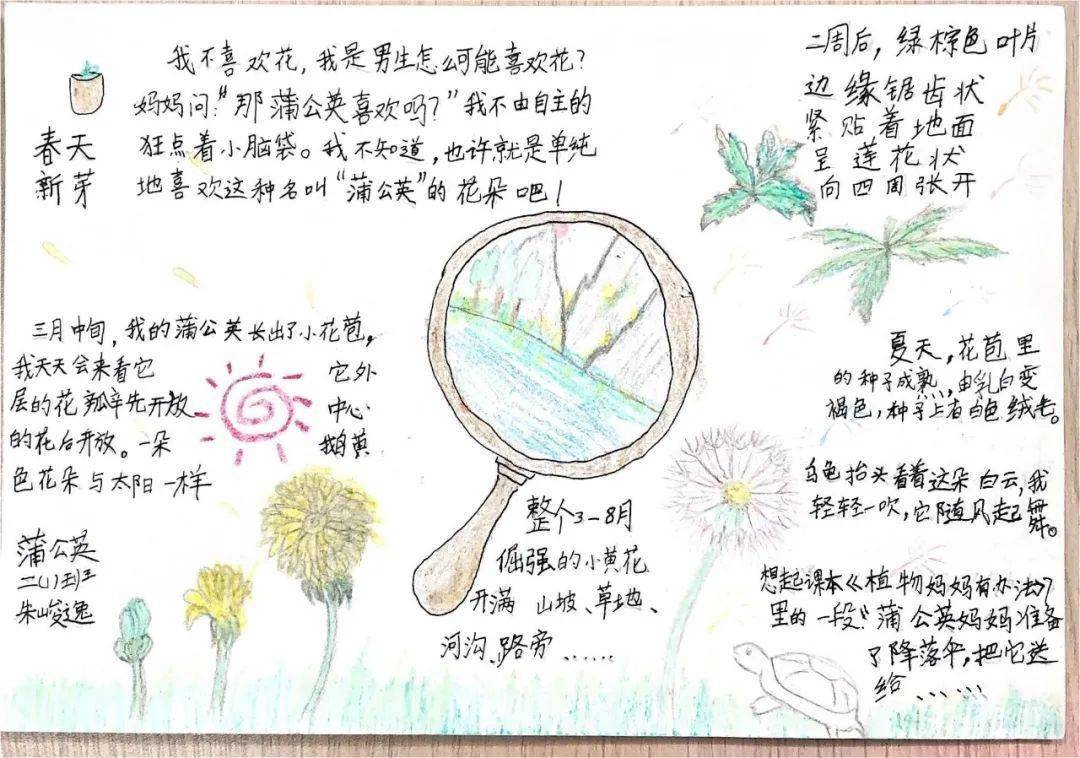 春天
新芽
我不喜欢花，我是男生怎么可能喜欢花？
妈妈问：“那蒲公英喜欢吗？”我不由自主的
狂点着小脑袋。我不知道，也许就是单纯
地喜欢这种名叫“蒲公英”的花朵吧！
二周后，绿棕色叶片
边缘锯齿状
紧贴着地面
呈莲花状
向四周张开
三月中旬，我的蒲公英长出了小花苞，
我天天会来看它 它外
层的花瓣先开放 中心
的花后开放。一朵 鹅黄
色花朵与太阳一样
夏天，花苞里
的种子成熟，由乳白变
褐色，种子上有白色绒毛。
乌龟抬头看着这朵白云，我
轻轻一吹，它随风起舞。
想起课本《植物妈妈有办法》
里的一段：“蒲公英妈妈准备
了降落伞，把它送
给……
整个3-8月
倔强的小黄花
开满 山坡、草地、
河沟、路旁……
蒲公英
二(1)班
朱峻逸